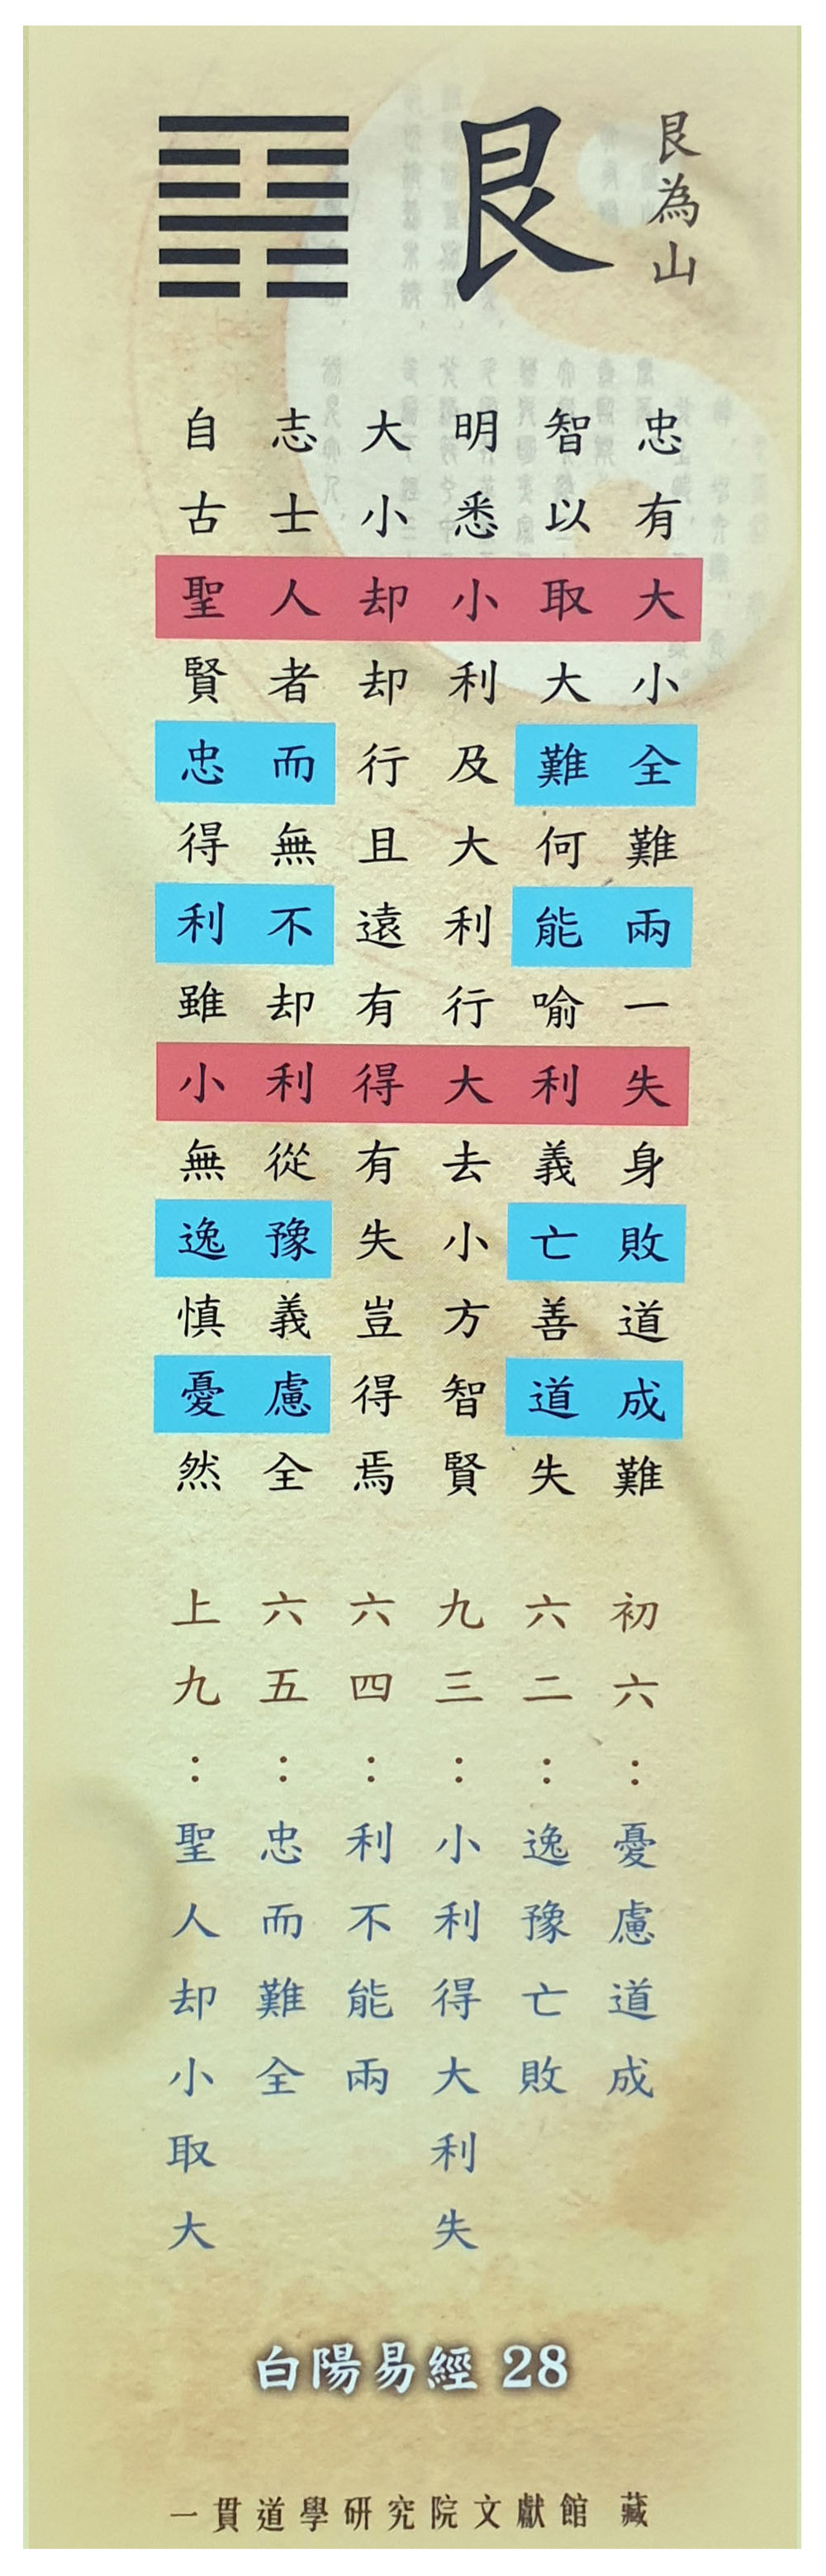 艮為山
艮
忠有大小全難兩一失身敗道成難
智以取大難何能喻利義亡善道失
明悉小利及大利行大去小方智賢
大小却却行且遠有得有失豈得焉
志士人者而無不却利從豫義慮全
自古聖賢忠得利雖小無逸慎憂然
初六：憂慮道成
六二：逸豫亡敗
九三：小利得大利失
六四：利不能兩
六五：忠而難全
上九：聖人却小取大
白陽易經 28
一貫道學研究院文獻館 藏